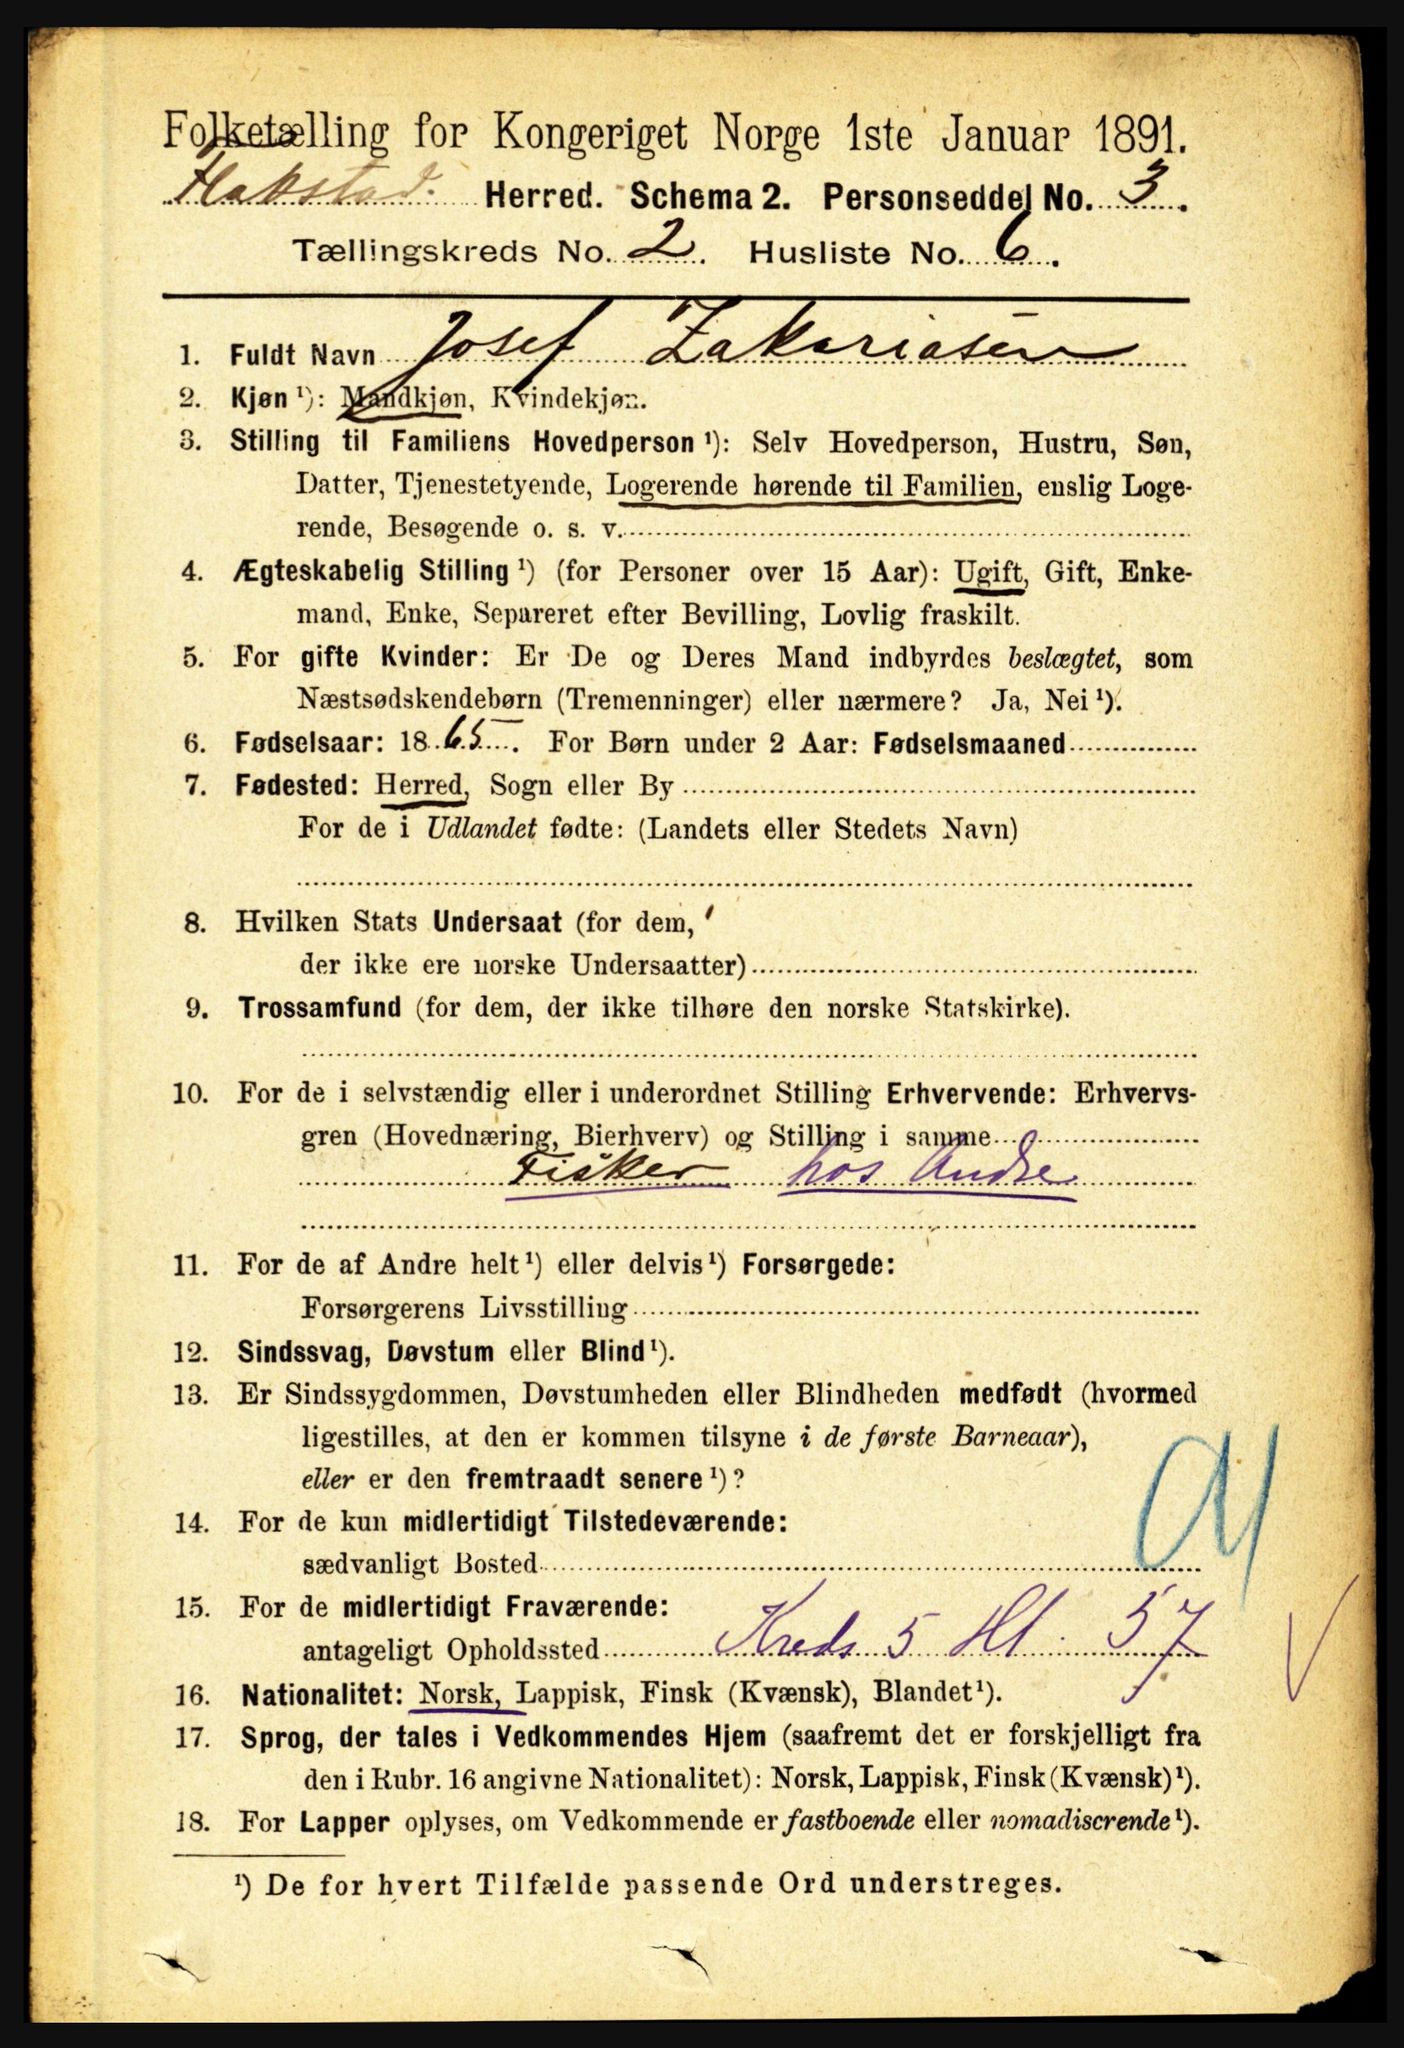 Folketælling for Kongeriget Norge 1ste Januar 1891.
Flakstad. Herred. Schema 2. Personseddel No. 3.
Tællingskreds No. 2. Husliste No. 6.
1. Fuldt Navn Josef Zakariasen
2. Kjøn ¹): Mandkjøn, Kvindekjøn.
3. Stilling til Familiens Hovedperson ¹): Selv Hovedperson, Hustru, Søn,
Datter, Tjenestetyende, Logerende hørende til Familien, enslig Loge-
rende, Besøgende o. s. v.
4. Ægteskabelig Stilling ¹) (for Personer over 15 Aar): Ugift, Gift, Enke-
mand, Enke, Separeret efter Bevilling, Lovlig fraskilt.
5. For gifte Kvinder: Er De og Deres Mand indbyrdes beslægtet, som
Næstsødskendebørn (Tremenninger) eller nærmere? Ja, Nei ¹).
6. Fødselsaar: 1865. For Børn under 2 Aar: Fødselsmaaned
7. Fødested: Herred, Sogn eller By
For de i Udlandet fødte: (Landets eller Stedets Navn)
8. Hvilken Stats Undersaat (for dem,
der ikke ere norske Undersaatter)
9. Trossamfund (for dem, der ikke tilhøre den norske Statskirke).
10. For de i selvstændig eller i underordnet Stilling Erhvervende: Erhvervs-
gren (Hovednæring, Bierhverv) og Stilling i samme
Fisker hos Andre
11. For de af Andre helt ¹) eller delvis ¹) Forsørgede:
Forsørgerens Livsstilling
12. Sindssvag, Døvstum eller Blind ¹).
13. Er Sindssygdommen, Døvstumheden eller Blindheden medfødt (hvormed
ligestilles, at den er kommen tilsyne i de første Barneaar),
eller er den fremtraadt senere ¹)?
14. For de kun midlertidigt Tilstedeværende:
sædvanligt Bosted
15. For de midlertidigt Fraværende:
antageligt Opholdssted Kreds 5 Hl. 57
16. Nationalitet: Norsk, Lappisk, Finsk (Kvænsk), Blandet ¹).
17. Sprog, der tales i Vedkommendes Hjem (saafremt det er forskjelligt fra
den i Rubr. 16 angivne Nationalitet): Norsk, Lappisk, Finsk (Kvænsk) ¹).
18. For Lapper oplyses, om Vedkommende er fastboende eller nomadiserende ¹).
¹) De for hvert Tilfælde passende Ord understreges.